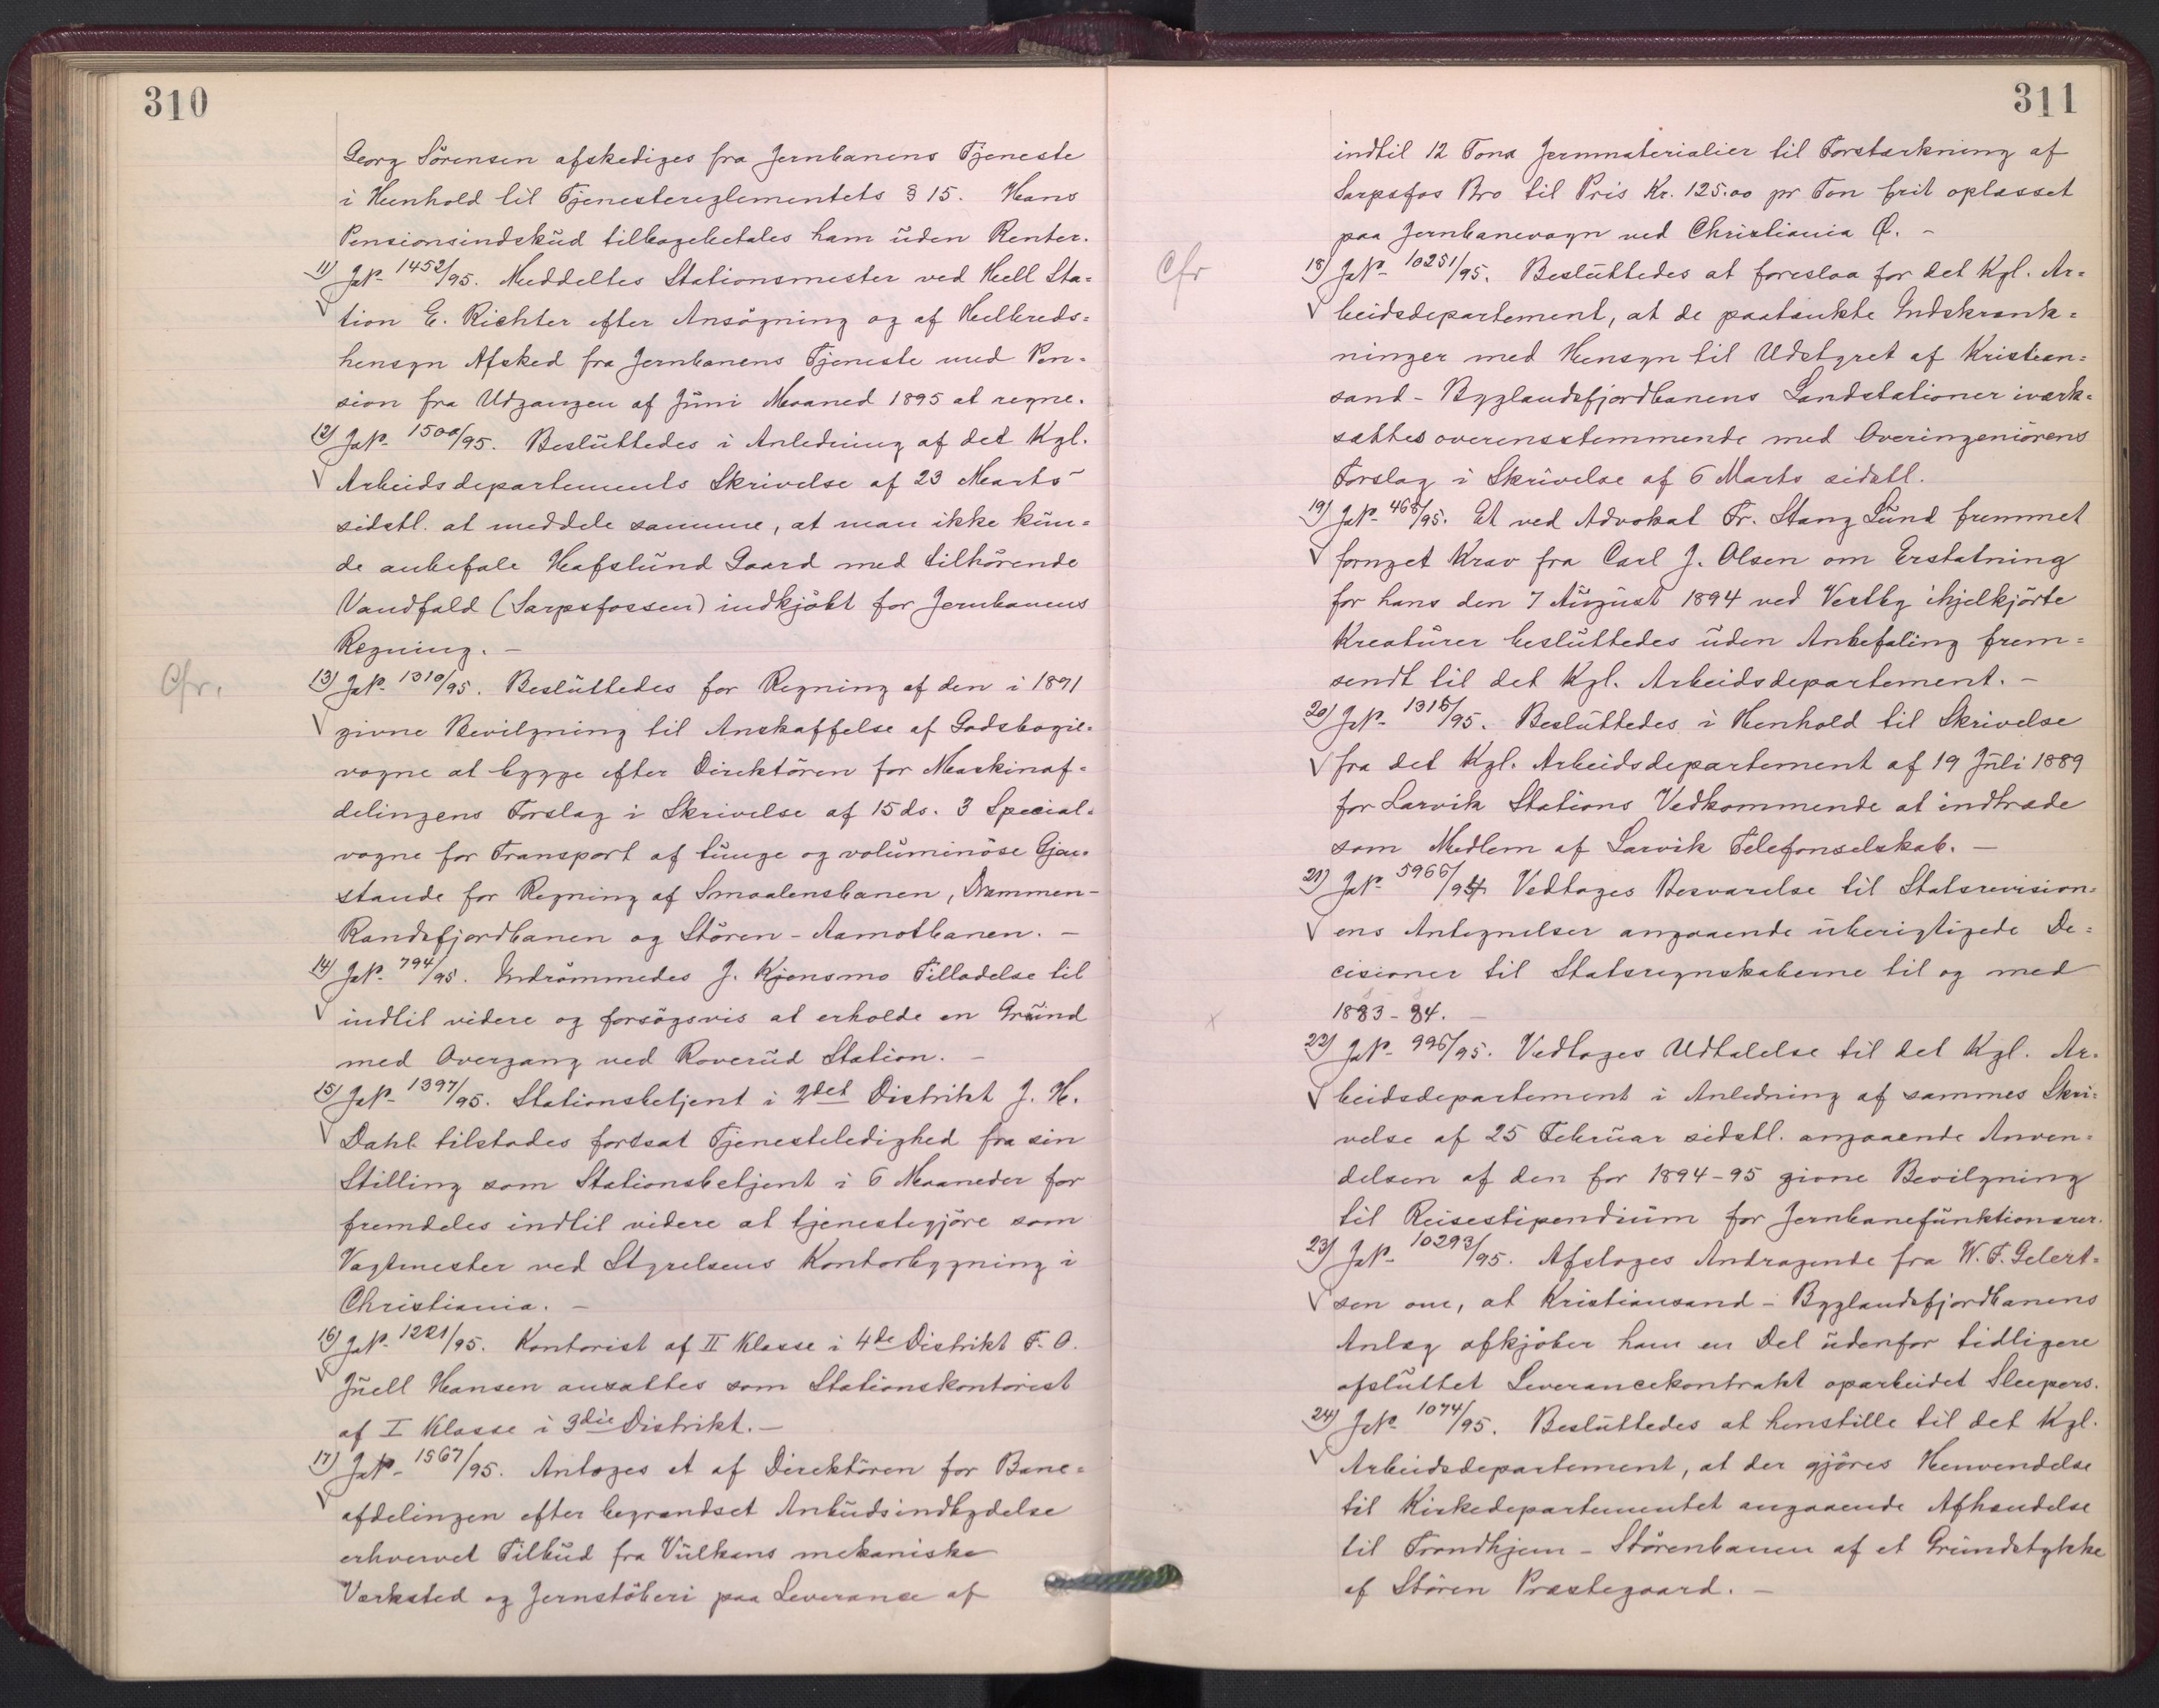 310
Georg Sörensen afskediges fra Jernbanens Tjeneste
i Henhold til Tjenestereglementets § 15. Hans
Pensionsindskud tilbagebetales ham uden Renter.
11) JN- 1452/95. Meddeltes Stationsmester ved Hell Sta=
tion E. Richter efter Ansögning og af Helbreds=
hensyn Afsked fra Jernbanens Tjeneste med Pen=
sion fra Udgangen af Juni Maaned 1895 at regne.
12) JN- 1500/95. Besluttedes i Anledning af det Kgl.
Arbeidsdepartements Skrivelse af 23 Marts
sidstl. at meddele samme, at man ikke kun=
de anbefale Hafslund Gaard med tilhörende
Vandfald (Sarpsfossen) indkjöbt for Jernbanens
Regning. -
Cfr.
13) JN- 1310/95. Besluttedes for Regning af den i 1891
givne Bevilgning til Anskaffelse af Godsbogie=
vogne at bygge efter Direktören for Maskinaf=
delingens Forslag i Skrivelse af 15 ds. 3 Special=
vogne for Transport af tunge og voluminöse Gjen=
stande for Regning af Smaalensbanen, Drammen-
Randsfjordbanen og Stören - Aamotbanen. -
14) JN- 794/95. Indrömmedes J. Kjonsmo Tilladelse til
indtil videre og forsögsvis at erholde en Grind
med Overgang ved Roverud Station. -
15) JN- 1397/95. Stationsbetjent i 2det Distrikt J. H.
Dahl tilstodes fortsat Tjenesteledighed fra sin
Stilling som Stationsbetjent i 6 Maaneder for
fremdeles indtil videre at tjenestegjöre som
Vagtmester ved Styrelsens Kontorbygning i
Christiania. -
16) JN- 1221/95. Kontorist af II Klasse i 4de Distrikt F. O.
Juell Hansen ansattes som Stationskontorist
af I Klasse i 3die Distrikt. -
17) JN- 1567/95. Antoges et af Direktören for Bane=
afdelingen efter begrændset Anbudsindbydelse
erhvervet Tilbud fra Vulkans mekaniske
Værksted og Jernstöberi paa Leverance af
311
indtil 12 Tons Jernmaterialier til Forstærkning af
Sarpsfos Bro til Pris Kr. 125.00 pr Ton frit oplæsset
paa Jernbanevogn ved Christiania Ö. -
Cfr
18) JN- 10251/95. Besluttedes at foreslaa for det Kgl. Ar=
beidsdepartement, at de paatænkte Indskrænk=
ninger med Hensyn til Udstyret af Kristian=
sand - Byglandsfjordbanens Landstationer iværk=
sættes overensstemmende med Overingeniörens
Forslag i Skrivelse af 6 Marts sidstl.
19) JN- 468/95. Et ved Advokat Fr. Stang Lund fremmet
fornyet Krav fra Carl J. Olsen om Erstatning
for hans den 7 August 1894 ved Vestby ihjelkjörte
Kreaturer besluttedes uden Anbefaling frem=
sendt til det Kgl. Arbeidsdepartement. -
20) JN- 1315/95. Besluttedes i Henhold til Skrivelse
fra det Kgl. Arbeidsdepartement af 19 Juli 1889
for Larvik Stations Vedkommende at indtræde
som Medlem af Larvik Telefonselskab. -
21) JN- 5966/94 Vedtoges Besvarelse til Statsrevision=
ens Antegnelser angaaende uberigtigede De=
cisioner til Statsregnskaberne til og med
1883 - 84. -
22) JN- 996/95. Vedtoges Udtalelse til det Kgl. Ar=
beidsdepartement i Anledning af sammes Skri=
velse af 25 Februar sidstl. angaaende Anven=
delsen af den for 1894-95 givne Bevilgning
til Reisestipendium for Jernbanefunktionærer.
23) JN- 10293/95. Afsloges Andragende fra W. F. Gelert=
sen om, at Kristiansand - Byglandsfjordbanens
Anlæg afkjöber ham en Del udenfor tidligere
afsluttet Leverancekontrakt oparbeidet Sleepers.
24) JN- 1074/95. Besluttedes at henstille til det Kgl.
Arbeidsdepartement, at der gjöres Henvendelse
til Kirkedepartementet angaaende Afhændelse
til Trondhjem - Störenbanen af et Grundstykke
af Stören Præstegaard. -